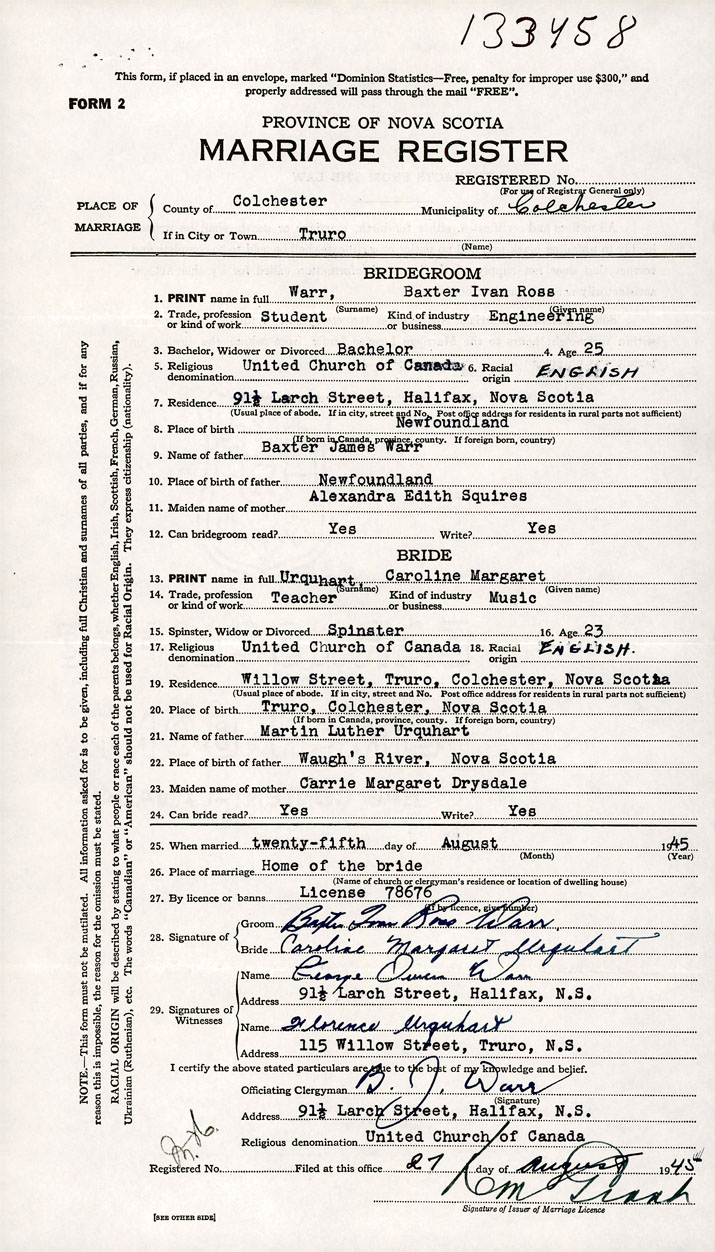 133458
This form, if placed in an envelope, marked "Dominion Statistics—Free, penalty for improper use $300," and
properly addressed will pass through the mail "FREE".
FORM 2
PROVINCE OF NOVA SCOTIA
MARRIAGE REGISTER
REGISTERED No.
(For use of Registrar General only)
PLACE OF MARRIAGE
County of Colchester Municipality of Colchester
If in City or Town Truro
(Name)
BRIDEGROOM
1. PRINT name in full Warr, Baxter Ivan Ross
(Surname) (Given name)
2. Trade, profession or kind of work Student Kind of industry or business Engineering
3. Bachelor, Widower or Divorced Bachelor 4. Age 25
5. Religious denomination United Church of Canada 6. Racial origin ENGLISH
7. Residence 91½ Larch Street, Halifax, Nova Scotia
(Usual place of abode. If in city, street and No. Post office address for residents in rural parts not sufficient)
8. Place of birth Newfoundland
(If born in Canada, province, county. If foreign born, country)
9. Name of father Baxter James Warr
10. Place of birth of father Newfoundland
11. Maiden name of mother Alexandra Edith Squires
12. Can bridegroom read? Yes Write? Yes
BRIDE
13. PRINT name in full Urquhart, Caroline Margaret
(Surname) (Given name)
14. Trade, profession or kind of work Teacher Kind of industry or business Music
15. Spinster, Widow or Divorced Spinster 16. Age 23
17. Religious denomination United Church of Canada 18. Racial origin ENGLISH.
19. Residence Willow Street, Truro, Colchester, Nova Scotia
(Usual place of abode. If in city, street and No. Post office address for residents in rural parts not sufficient)
20. Place of birth Truro, Colchester, Nova Scotia
(If born in Canada, province, county. If foreign born, country)
21. Name of father Martin Luther Urquhart
22. Place of birth of father Waugh's River, Nova Scotia
23. Maiden name of mother Carrie Margaret Drysdale
24. Can bride read? Yes Write? Yes
25. When married twenty-fifth day of August 1945
(Month) (Year)
26. Place of marriage Home of the bride
(Name of church or clergyman's residence or location of dwelling house)
27. By licence or banns License 78676
(If by licence, give number)
28. Signature of
Groom Baxter Ivan Ross Warr
Bride Caroline Margaret Urquhart
29. Signatures of Witnesses
Name George Owen Warr
Address 91½ Larch Street, Halifax, N.S.
Name Florence Urquhart
Address 115 Willow Street, Truro, N.S.
I certify the above stated particulars are true to the best of my knowledge and belief.
Officiating Clergyman B. J. Warr
(Signature)
Address 91½ Larch Street, Halifax, N.S.
Religious denomination United Church of Canada
Registered No. Filed at this office 27 day of August 1945
Signature of Issuer of Marriage Licence
[SEE OTHER SIDE]
NOTE.—This form must not be mutilated. All information asked for is to be given, including full Christian and surnames of all parties, and if for any
reason this is impossible, the reason for the omission must be stated.
RACIAL ORIGIN will be described by stating to what people or race each of the parents belongs, whether English, Irish, Scottish, French, German, Russian,
Ukrainian (Ruthenian), etc. The words "Canadian" or "American" should not be used for Racial Origin. They express citizenship (nationality).